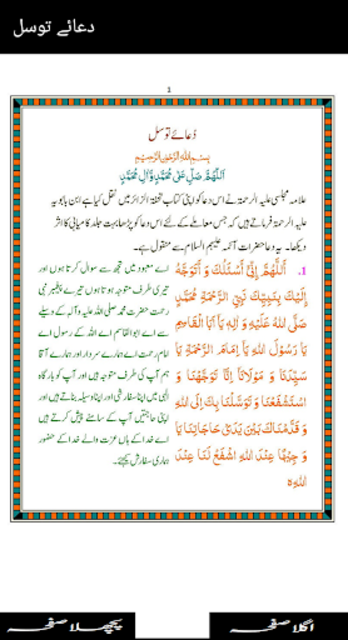 دعائے توسل
1
دُعائے توسل
بِسمِ اللہِ الرَّحمٰنِ الرَّحِيمِ
اَللّٰهُمَّ صَلِّ عَلٰى مُحَمَّدٍ وَّاٰلِ مُحَمَّدٍ
علامہ مجلسی علیہ الرحمۃ نے اس دعا کو اپنی کتاب تحفۃ الزائر میں نقل کیا ہے ابن بابویہ
علیہ الرحمۃ فرماتے ہیں کہ جس معاملے کے لئے اس دعا کو پڑھا بہت جلد کامیابی کا اثر
دیکھا۔ یہ دعا حضرات آئمہ علیہم السلام سے منقول ہے۔
1. اَللّٰهُمَّ اِنِّىْ اَسْئَلُكَ وَ اَتَوَجَّهُ
اِلَيْكَ بِنَبِيِّكَ نَبِىِّ الرَّحْمَةِ مُحَمَّدٍ
صَلَّى اللهُ عَلَيْهِ وَ اٰلِهٖ يَا اَبَا الْقَاسِمِ
يَا رَسُوْلَ اللهِ يَا اِمَامَ الرَّحْمَةِ يَا
سَيِّدَنَا وَ مَوْلَانَا اِنَّا تَوَجَّهْنَا وَ
اسْتَشْفَعْنَا وَ تَوَسَّلْنَا بِكَ اِلَى اللهِ
وَ قَدَّمْنَاكَ بَيْنَ يَدَىْ حَاجَاتِنَا يَا
وَ جِيْهًا عِنْدَ اللهِ اشْفَعْ لَنَا عِنْدَ
اللهِ ہ
اے معبود میں تجھ سے سوال کرتا ہوں اور
تیری طرف متوجہ ہوتا ہوں تیرے پیغمبر نبی
رحمت حضرت محمد صلی اللہ علیہ وآلہ کے وسیلے
سے اے ابوالقاسم اے اللہ کے رسول اے
امام رحمت اے ہمارے سردار اور ہمارے آقا
ہم آپ کی طرف متوجہ ہیں اور آپ کو بارگاہ
الٰہی میں اپنا سفارشی اور اپنا وسیلہ بناتے ہیں اور
اپنی حاجتیں آپ کے سامنے پیش کرتے ہیں
اے خدا کے ہاں عزت والے خدا کے حضور
ہماری سفارش کیجئے۔
اگلا صفحہ
پچھلا صفحہ